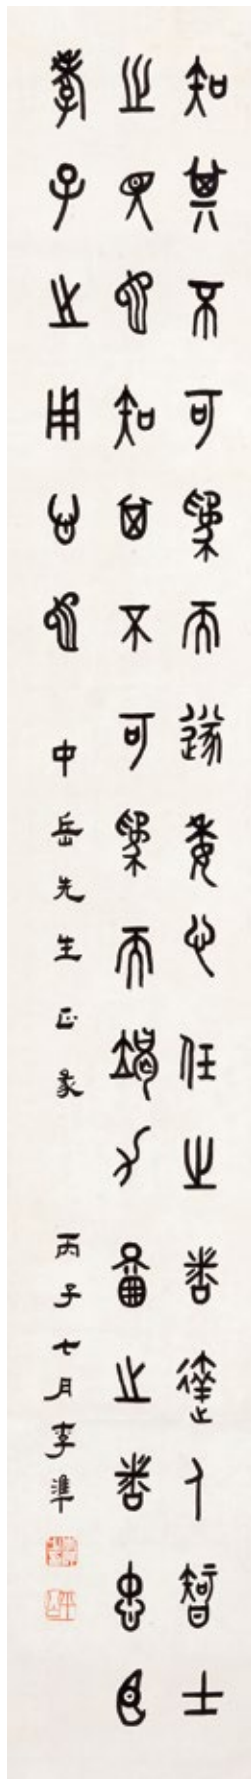 知其不可為而遂委心任之者達人智士
之見也知其不可為而竭力圖之者忠臣
孝子之用心也 中岳先生正 丙子七月李準